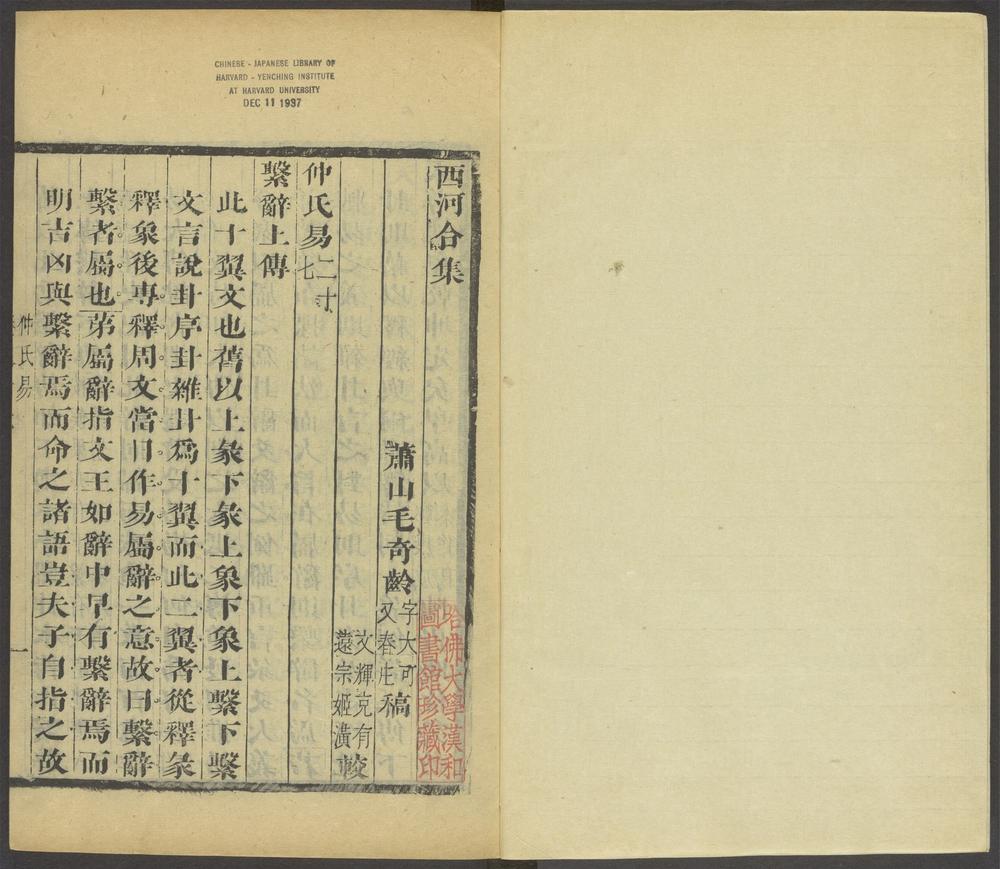 CHINESE - JAPANESE LIBRARY OF
HARVARD - YENCHING INSTITUTE
AT HARVARD UNIVERSITY
DEC 11 1937
西河合集
蕭山毛奇齡字大可又春庄稿
文輝克有
遠宗姬潢較
仲氏易二十七
繫辭上傳
此十翼文也舊以上彖下彖上象下象上繫下繫
文言說卦序卦雜卦爲十翼而此二翼者從釋彖
釋象後專釋周文當日作易屬辭之意故曰繫辭
繫者屬也第屬辭指文王如辭中早有繫辭焉而
明吉凶與繫辭焉而命之諸語豈夫子自指之故
仲氏易
一
哈佛大學漢和
圖書館珍藏印